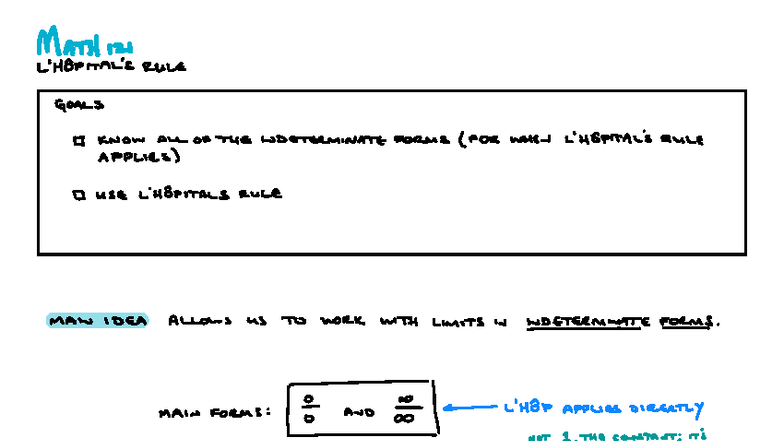 MATH 121
L'HÔPITAL'S RULE
GOALS
KNOW ALL OF THE INDETERMINATE FORMS (FOR WHEN L'HÔPITAL'S RULE
APPLIES)
USE L'HÔPITALS RULE
MAIN IDEA ALLOWS US TO WORK WITH LIMITS IN INDETERMINATE FORMS.
MAIN FORMS: 0/0 AND ∞/∞ ← L'HÔP APPLIES DIRECTLY
NOT 1, THE CONSTANT; IT'S